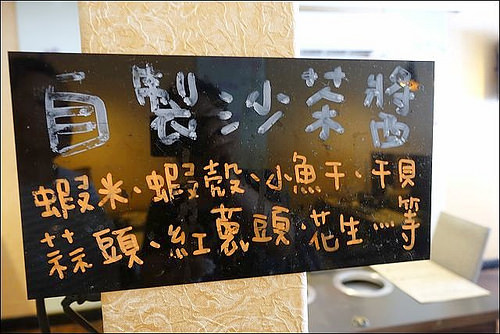 自製沙茶醬
蝦米、蝦殼、小魚干、干貝
蒜頭、紅蔥頭、花生...等